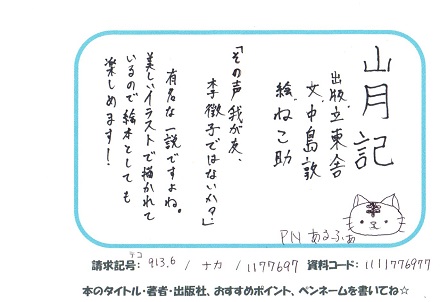 山月記
出版.立東舎
文.中島敦
絵.ねこ助
「その声我が友、
李徴子ではないか?」
有名な一説ですよね。
美しいイラストで描かれて
いるので絵本としても
楽しめます!
PN あるふぁ
テコ
請求記号: 913.6 / ナカ / 1177697 資料コード: 1111776977
本のタイトル・著者・出版社、おすすめポイント、ペンネームを書いてね☆